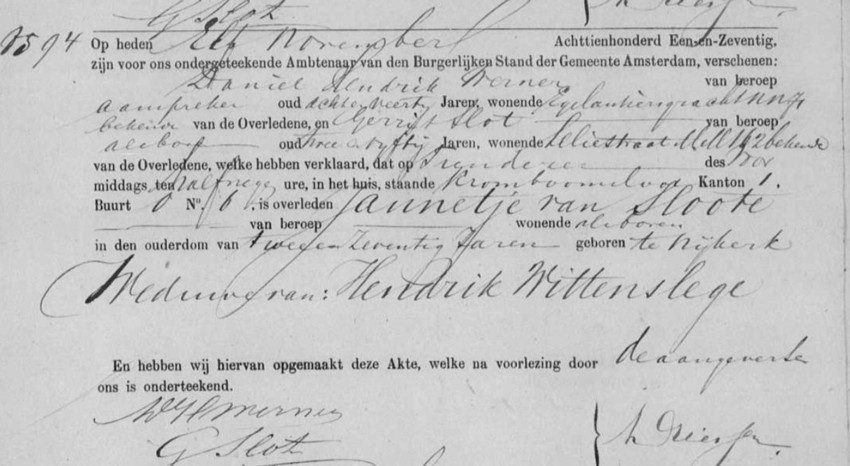 G Slot
Op heden Elf November Achttienhonderd Een-en-Zeventig,
zijn voor ons ondergeteekende Ambtenaar van den Burgerlijken Stand der Gemeente Amsterdam, verschenen:
Daniel Hendrik Werner van beroep
aanspreker oud achtenveertig Jaren, wonende Egelantiersgracht
bekende van de Overledene, en Gerrit Slot van beroep
alsboven oud twee en vyftig Jaren, wonende Leliestraat bekende
van de Overledene, welke hebben verklaard, dat op des voor
middags, ten half negen ure, in het huis, staande Kromboomsloot Kanton 1.
Buurt No. 6, is overleden Jannetje van Sloote
van beroep wonende alsboven
in den ouderdom van twee en Zeventig Jaren geboren te Nijkerk
Weduwe van: Hendrik Wittenslege
En hebben wij hiervan opgemaakt deze Akte, welke na voorlezing door de aangevers en
ons is onderteekend.
G Slot